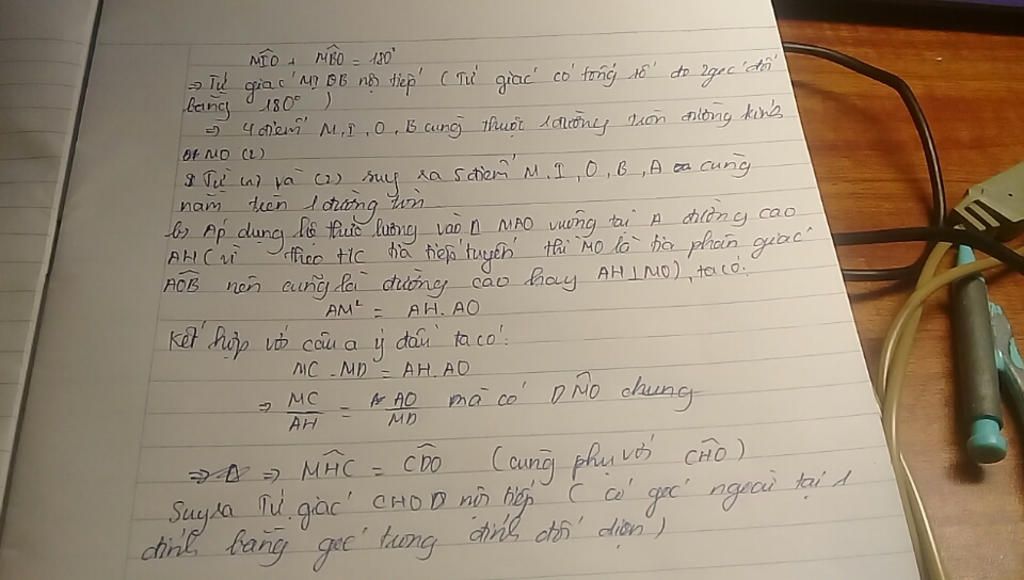 MIO + MBO = 180°
=> Tứ giác MIOB nội tiếp (Tứ giác có tổng số đo 2 góc đối
bằng 180°)
=> 4 điểm M, I, O, B cùng thuộc 1 đường tròn đường kính
MO (2)
Từ (1) và (2) suy ra 5 điểm M, I, O, B, A cùng
nằm trên 1 đường tròn
b, Áp dụng hệ thức lượng vào Δ MAO vuông tại A đường cao
AH (vì theo t/c tia tiếp tuyến thì MO là tia phân giác
AOB nên cũng là đường cao hay AH⊥MO), ta có:
AM² = AH. AO
Kết hợp với câu a ý đầu ta có:
MC . MD = AH. AO
=> MC/AH = AO/MD mà có DMO chung
=> MHC = CDO (cùng phụ với CHO)
Suy ra Tứ giác CHOD nội tiếp (có góc ngoài tại 1
đỉnh bằng góc trong đỉnh đối diện)